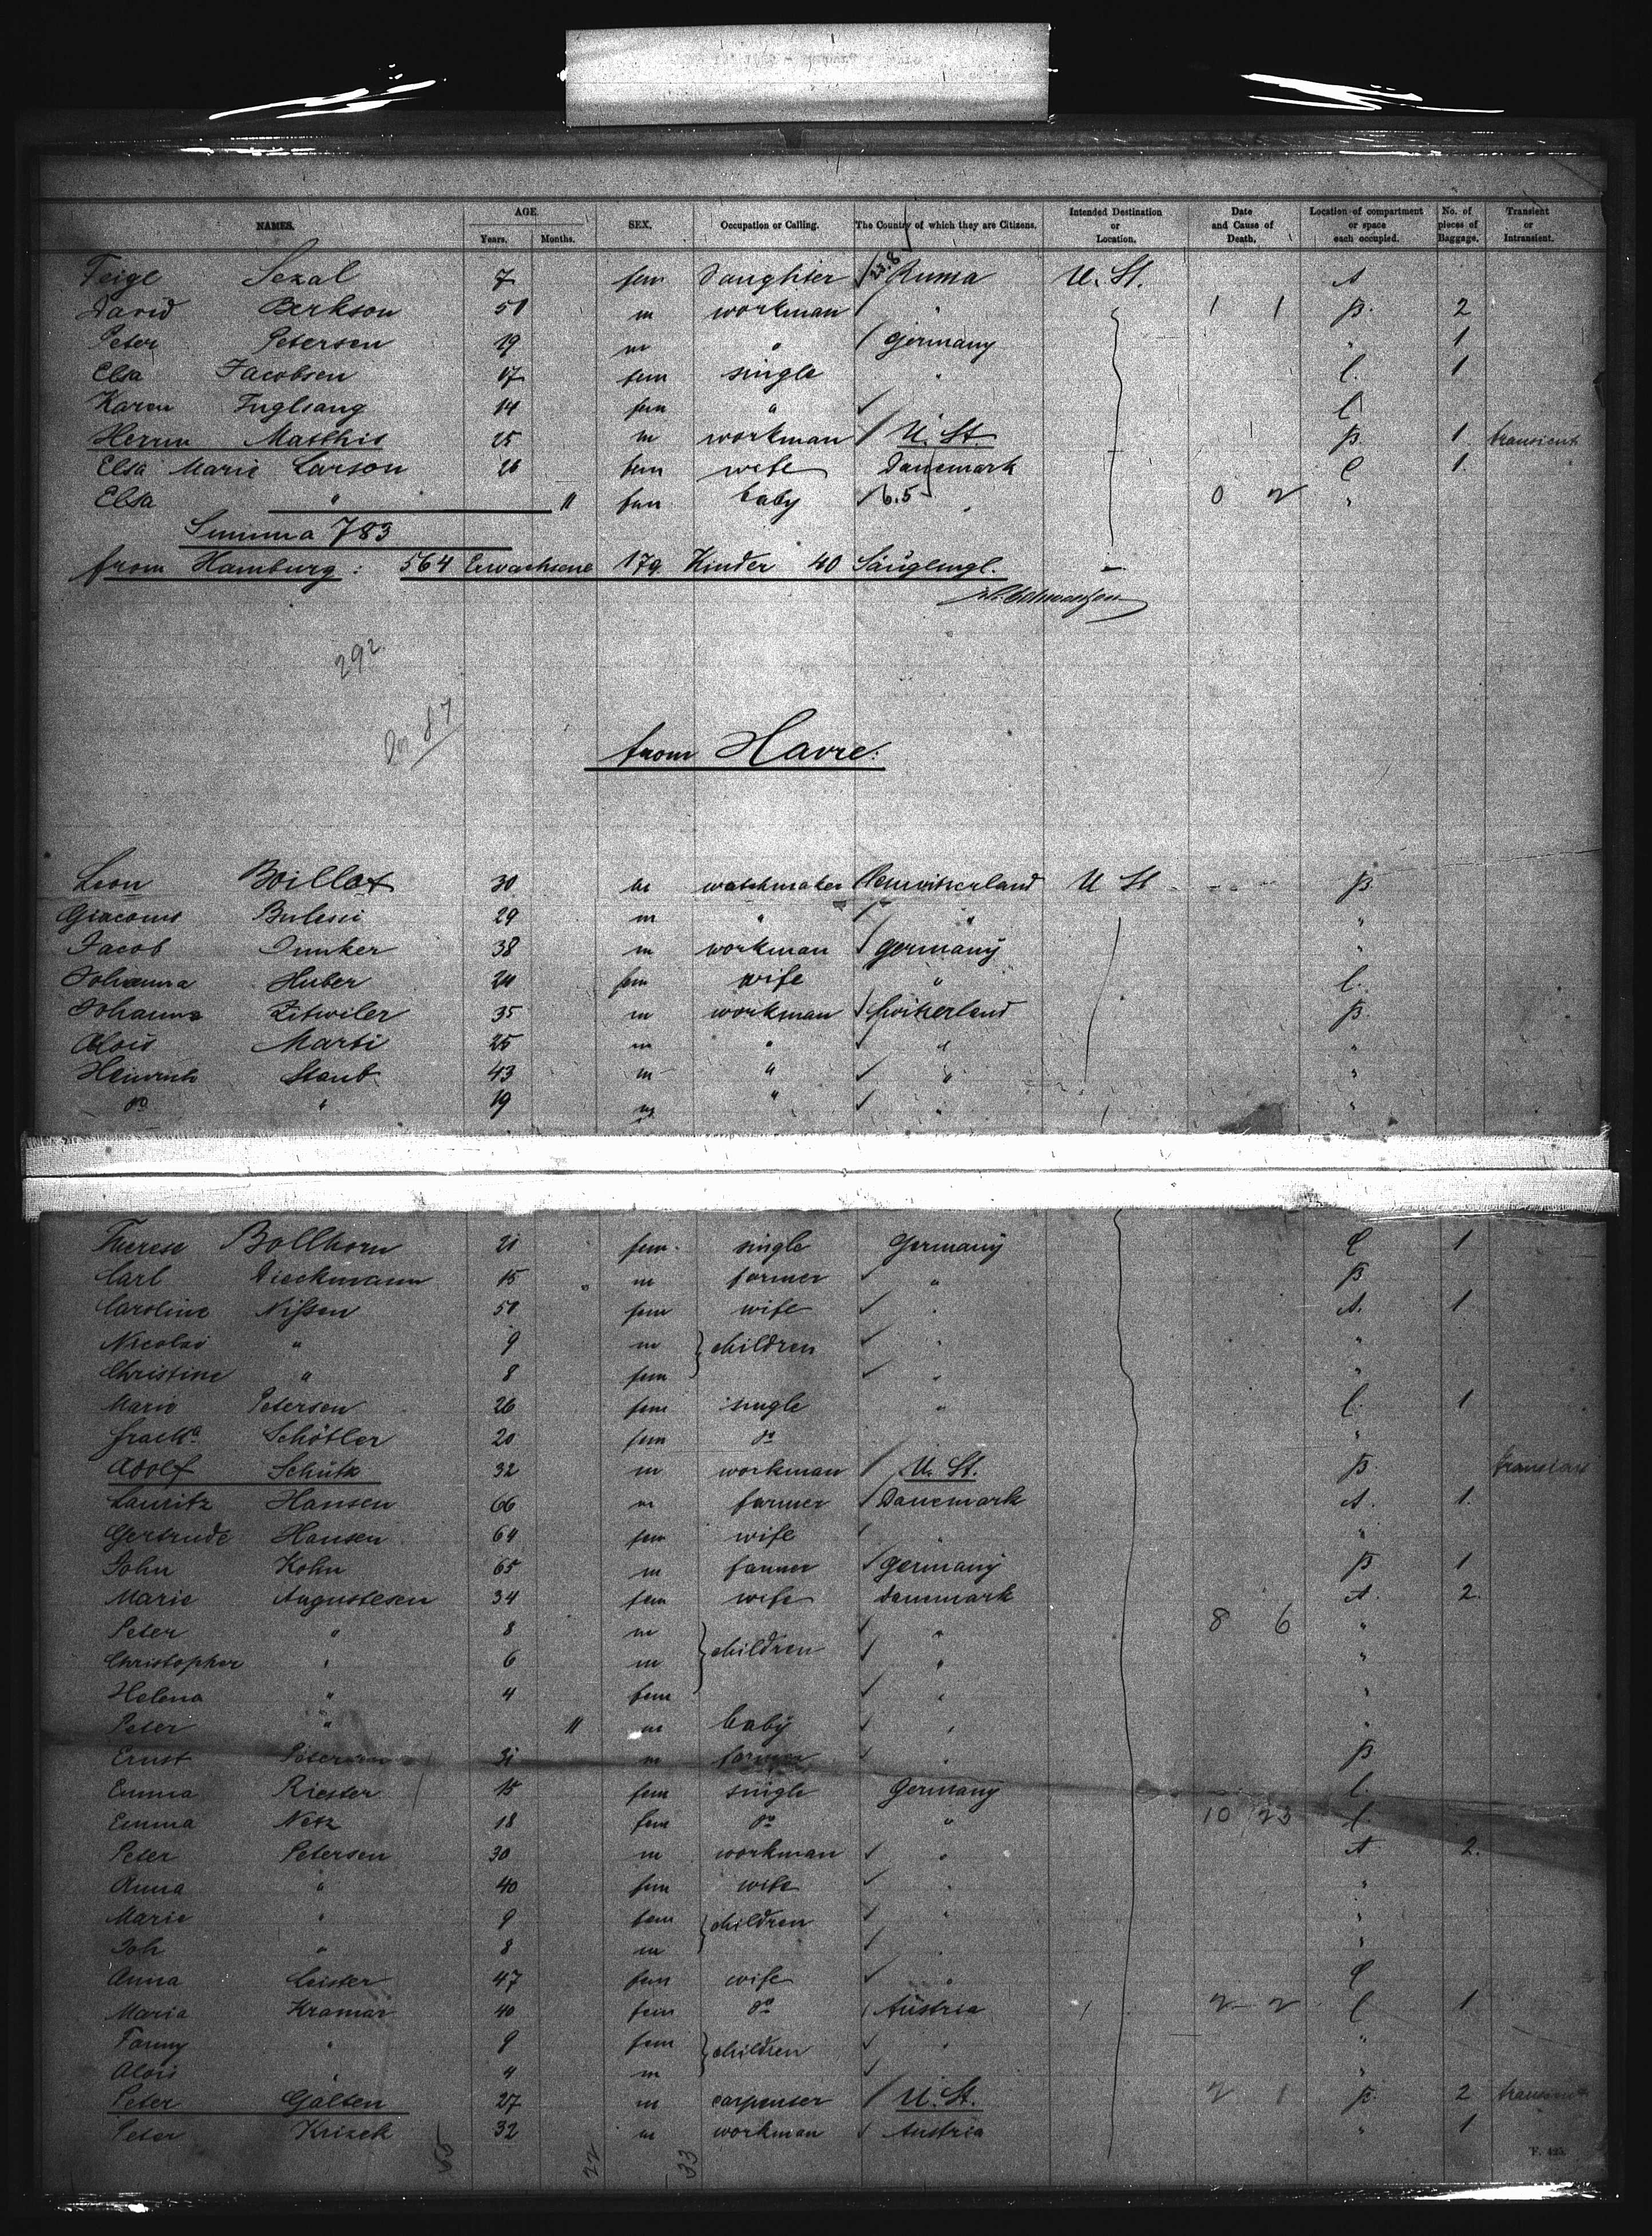 NAMES. AGE Years. Months. SEX. Occupation or Calling. The Country of which they are Citizens. Intended Destination or Location. Date and Cause of Death. Location of compartment or space each occupied. No. of pieces of Baggage. Transient or Intransient.
Feige Sezal 7 fem Daughter 23.8 Rumä U. St. A
David Berkson 51 m workman " 1 1 B. 2
Peter Petersen 19 m " Germany " 1
Elsa Jacobsen 17 fem single " C. 1
Karen Fuglsang 14 fem " " C
Herm Matthis 25 m workman U. St. B. 1 transient
Elsa Marie Larson 26 fem wife Danemark C 1
Elsa " 11 fem baby 6.5 " 0 2 "
Summa 783
from Hamburg: 564 Erwachsene 179 Kinder 40 Säuglingl.
292
from Havre:
Leon Boillat 30 m watchmaker U St B.
Giacomo 29 m " " "
Jacob Dunker 38 m workman Germany "
Johanna Huber 24 fem wife " C.
Johann Zitwiler 35 m workman Switzerland B.
Alois Marti 25 m " " "
Heinrich Staub 43 m " " "
do " 19 m " " "
Therese Bollhorn 21 fem. single Germany C 1
Carl Dieckmann 15 m farmer " B
Caroline Nissen 51 fem wife " A. 1
Nicolai " 9 m children " "
Christine " 8 fem " "
Marie Petersen 26 fem single " C. 1
Schötler 20 fem do "
Adolf Schütz 32 m workman U. St. B.
Lauritz Hansen 66 m farmer Danemark A. 1.
Gertrude Hansen 64 fem wife " "
John Kohn 65 m farmer Germany B 1
Marie Augustesen 34 fem wife Danemark A. 2.
Peter " 8 m children " 8 6 "
Christopher " 6 m " "
Helena " 4 fem " "
Peter " 11 m baby " "
Ernst Petersen 31 m farmer " B
Emma Riester 15 fem single Germany C.
Emma Netz 18 fem do " 10 23 C.
Peter Petersen 30 m workman " A. 2.
Anna " 40 fem wife " "
Marie " 9 fem children " "
Joh " 8 m " "
Anna Leister 47 fem wife " C
Maria Kramar 40 fem do Austria 2 2 C 1
Fanny " 9 fem children " "
Alois " 4 m " "
Peter Galten 27 m carpenter U. St. 2 1 B. 2 transient
Peter Krizek 32 m workman Austria " 1
22 33